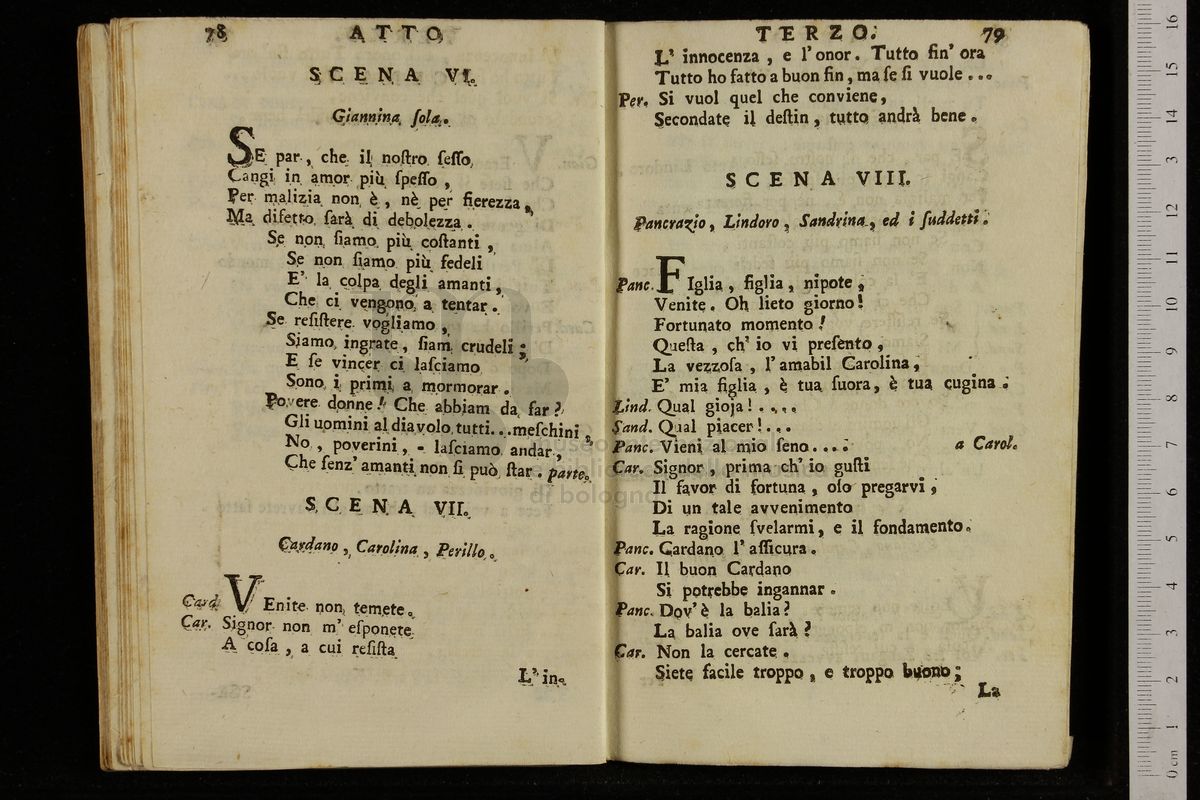 78 ATTO
SCENA VI.
Giannina ſola.
SE par, che il noſtro ſeſſo,
Cangi in amor più ſpeſſo,
Per malizia non è, nè per fierezza,
Ma difetto ſarà di debolezza.
Se non ſiamo più coſtanti,
Se non ſiamo più fedeli
E' la colpa degli amanti,
Che ci vengono a tentar.
Se reſiſtere vogliamo,
Siamo ingrate, ſiam crudeli;
E ſe vincer ci laſciamo
Sono i primi a mormorar.
Povere donne! Che abbiam da far?
Gli uomini al diavolo tutti...meſchini,
No, poverini, - laſciamo andar,
Che ſenz' amanti non ſi può ſtar. parte.
SCENA VII.
Cardano, Carolina, Perillo.
Card. VEnite non temete.
Car. Signor non m' eſponete
A coſa, a cui reſiſta
L' in-
TERZO. 79
L' innocenza, e l'onor. Tutto fin' ora
Tutto ho fatto a buon fin, ma ſe ſi vuole...
Per. Si vuol quel che conviene,
Secondate il deſtin, tutto andrà bene.
SCENA VIII.
Pancrazio, Lindoro, Sandrina, ed i ſuddetti.
Panc. FIglia, figlia, nipote,
Venite. Oh lieto giorno!
Fortunato momento!
Queſta, ch' io vi preſento,
La vezzoſa, l'amabil Carolina,
E' mia figlia, è tua ſuora, è tua cugina.
Lind. Qual gioja!....
Sand. Qual piacer!...
Panc. Vieni al mio ſeno.... a Carol.
Car. Signor, prima ch' io guſti
Il favor di fortuna, oſo pregarvi,
Di un tale avvenimento
La ragione ſvelarmi, e il fondamento.
Panc. Cardano l'aſſicura.
Car. Il buon Cardano
Si potrebbe ingannar.
Panc. Dov'è la balia?
La balia ove ſarà?
Car. Non la cercate.
Siete facile troppo, e troppo buono;
La